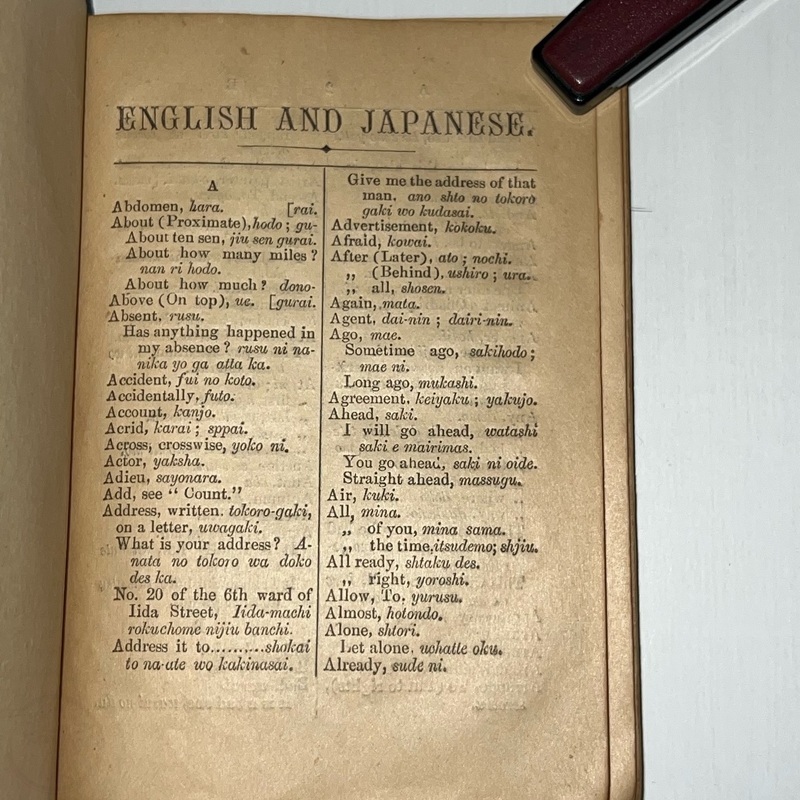 ENGLISH AND JAPANESE.
A
Abdomen, hara. [rai.
About (Proximate), hodo ; gu-
About ten sen, jiu sen gurai.
About how many miles ?
nan ri hodo.
About how much ? dono-
Above (On top), ue. [gurai.
Absent, rusu.
Has anything happened in
my absence ? rusu ni na-
nika yo ga atta ka.
Accident, fui no koto.
Accidentally, futo.
Account, kanjo.
Acrid, karai ; sppai.
Across, crosswise, yoko ni.
Actor, yaksha.
Adieu, sayonara.
Add, see “ Count.”
Address, written. tokoro-gaki,
on a letter, uwagaki.
What is your address ? A-
nata no tokoro wa doko
des ka.
No. 20 of the 6th ward of
Iida Street, Iida-machi
rokuchome nijiu banchi.
Address it to..........shokai
to na-ate wo kakinasai.
Give me the address of that
man. ano shto no tokoro
gaki wo kudasai.
Advertisement, kokoku.
Afraid, kowai.
After (Later), ato ; nochi.
„ (Behind), ushiro ; ura.
„ all, shosen.
Again, mata.
Agent, dai-nin ; dairi-nin.
Ago, mae.
Sometime ago, sakihodo ;
mae ni.
Long ago, mukashi.
Agreement, keiyaku ; yakujo.
Ahead, saki.
I will go ahead, watashi
saki e mairimas.
You go ahead, saki ni oide.
Straight ahead, massugu.
Air, kuki.
All, mina.
„ of you, mina sama.
„ the time, itsudemo; shjiu.
All ready, shtaku des.
„ right, yoroshi.
Allow, To. yurusu.
Almost, hotondo.
Alone, shtori.
Let alone, uchatte oku.
Already, sude ni.